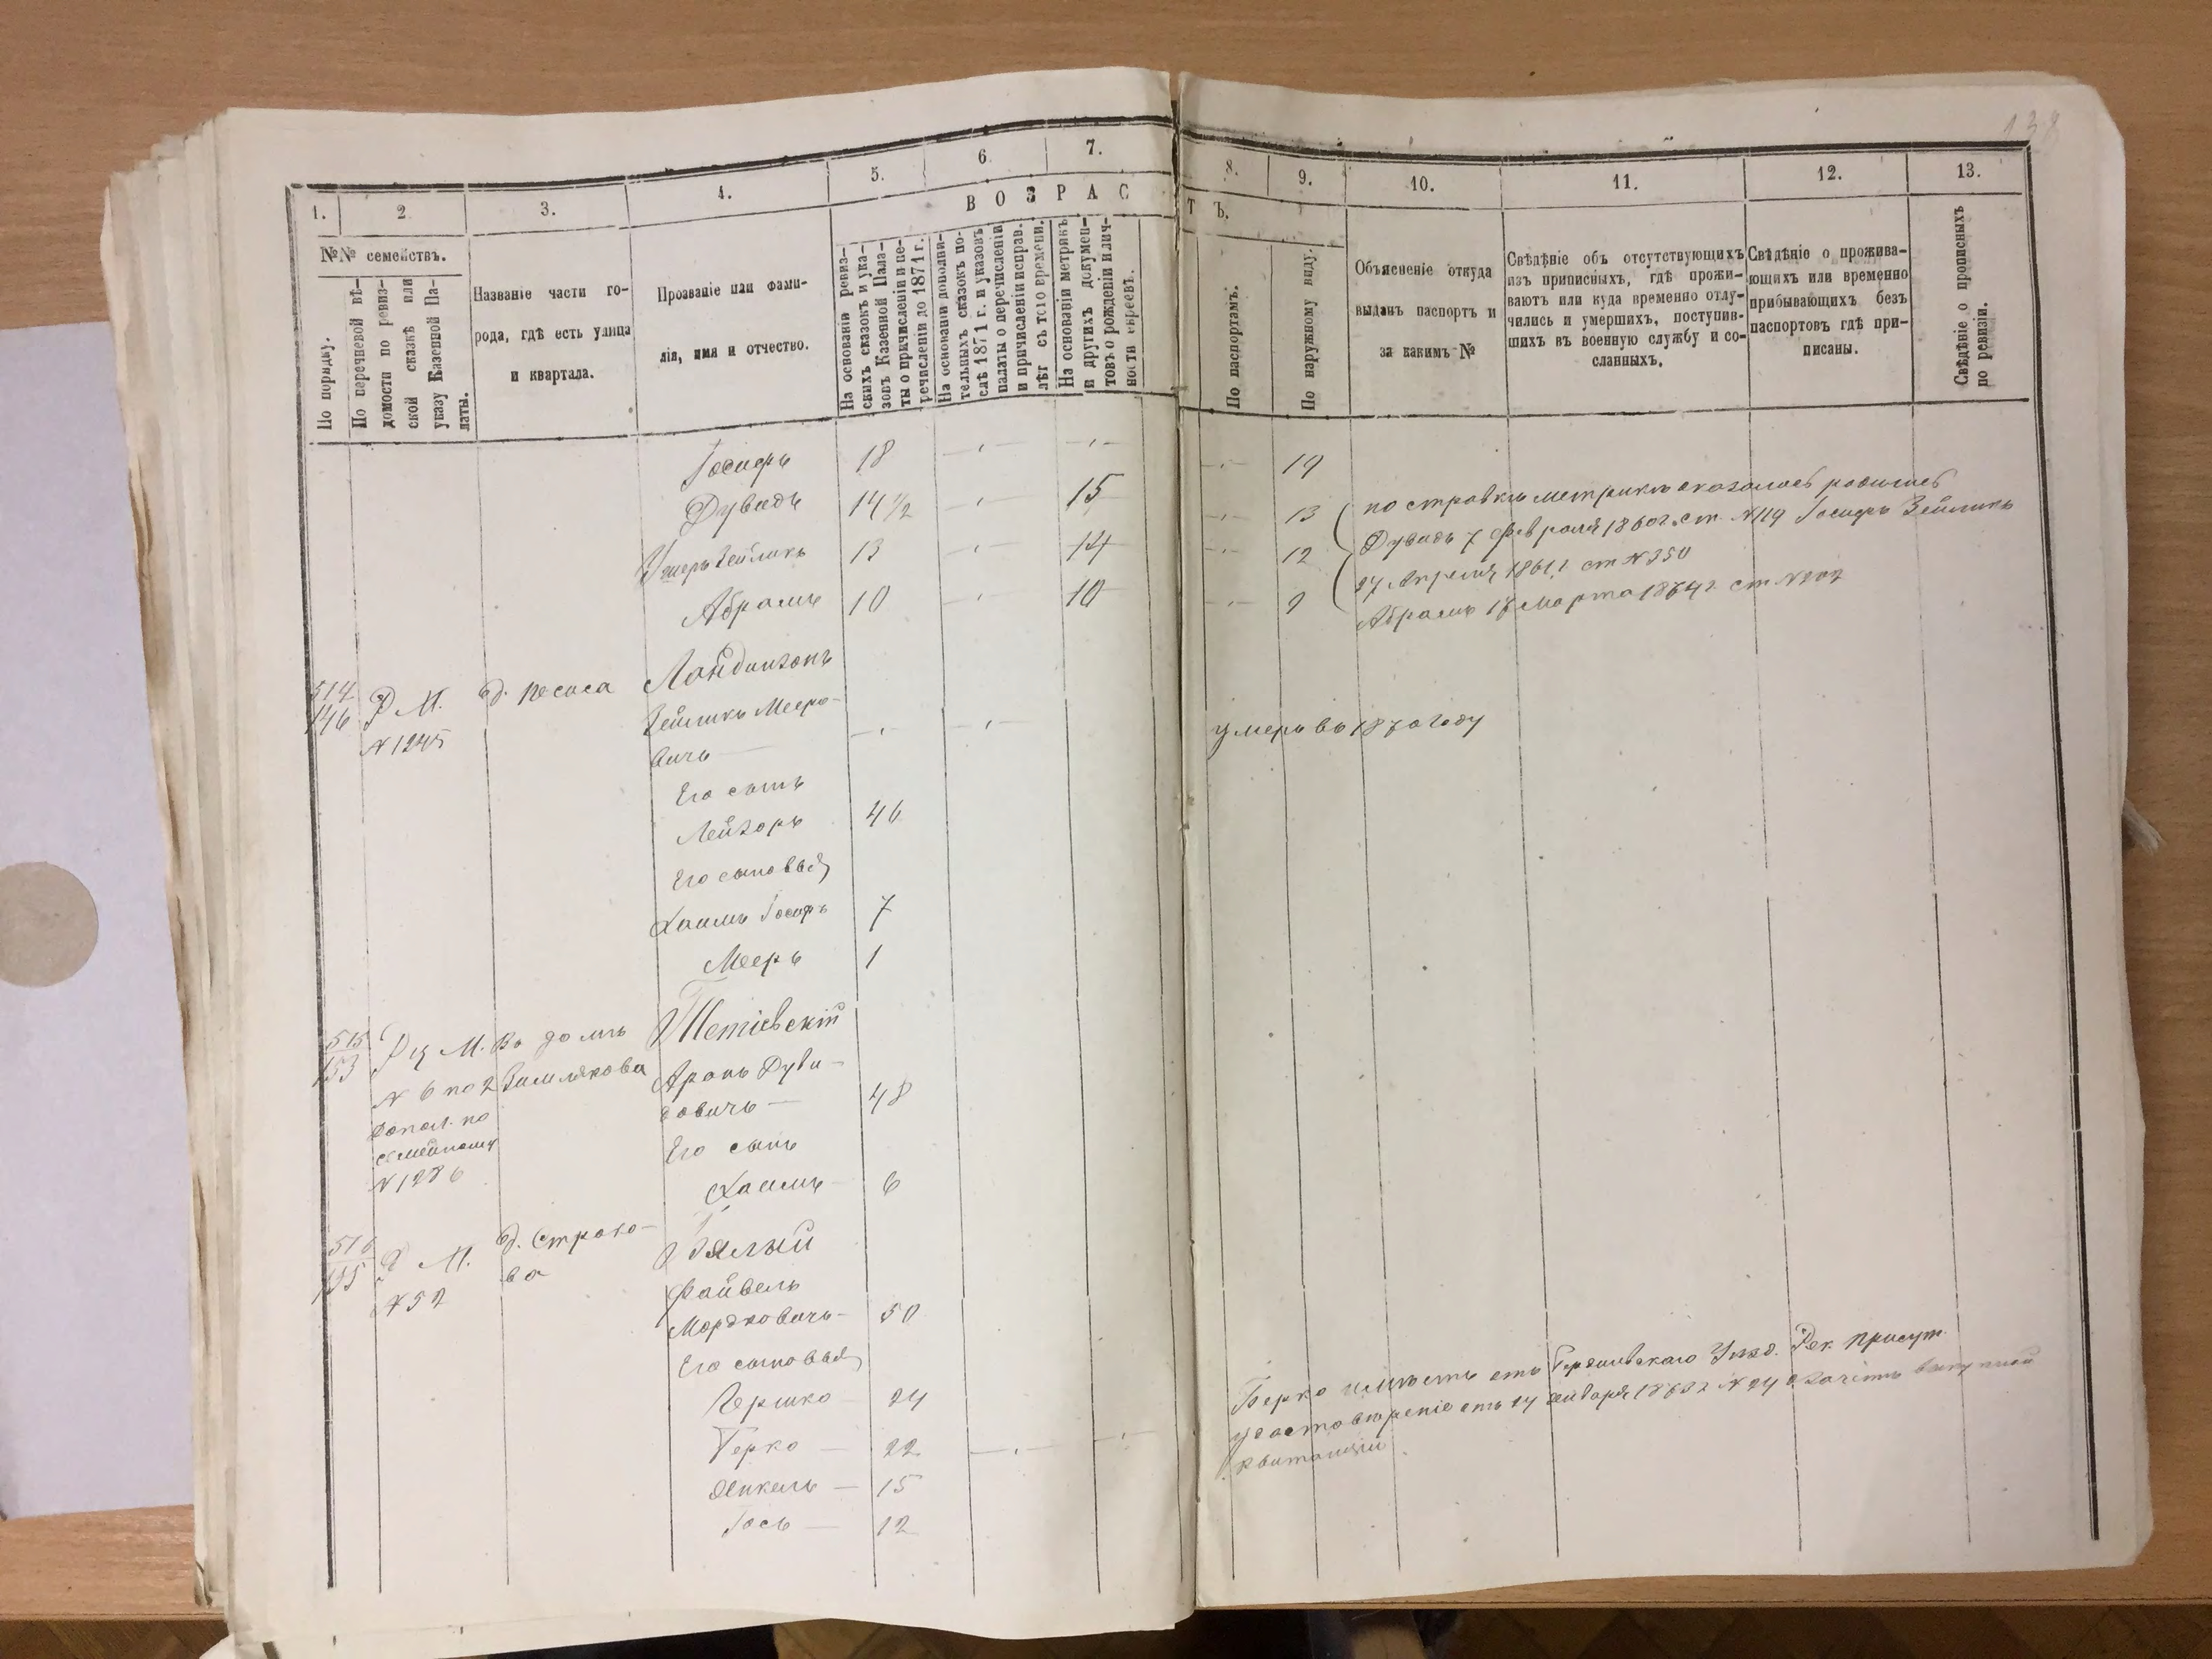 138
1.
2
3.
4.
5.
6.
7.
8.
9.
10.
11.
12.
13.
ВОЗРАС
ТЪ.
№№ семействъ.
По порядку.
По перечневой вѣ-
домости по ревиз-
ской сказкѣ или
указу Казенной Па-
латы.
Названіе части го-
рода, гдѣ есть улица
и квартала.
Прозваніе или фами-
лія, имя и отчество.
На основаніи ревиз-
скихъ сказокъ и ука-
зовъ Казенной Пала-
ты о причисленіи и пе-
речисленіи до 1871 г.
На основаніи дополни-
тельныхъ сказокъ по-
слѣ 1871 г. и указовъ
палаты о перечисленіи
и причисленіи исправ.
лѣт съ того времени.
На основаніи метрикъ
и другихъ докумен-
товъ о рожденіи и лич-
ности евреевъ.
По паспортамъ.
По наружному виду.
Объясненіе откуда
выданъ паспортъ и
за какимъ №
Свѣдѣніе объ отсутствующихъ
изъ приписныхъ, гдѣ прожи-
ваютъ или куда временно отлу-
чились и умершихъ, поступив-
шихъ въ военную службу и со-
сланныхъ.
Свѣдѣніе о прожива-
ющихъ или временно
прибывающихъ безъ
паспортовъ гдѣ при-
писаны.
Свѣдѣніе о прописныхъ
по ревизіи.
Іосифъ 18 19
Дувидъ 14 1/2 15 13
Зейликъ 13 14 12
Абрамъ 10 10 9
по справкѣ метрикъ оказалось родились
Дувидъ 7 февраля 1860 г. ст. №119 Іосифъ Зейликъ
27 Апрѣля 1861 г ст №350
Абрамъ 17 Марта 1864 г ст №202
514
146
Р М. д. Песиса Ландинзонъ
№1245
Зейликъ Мееро-
вичъ
умеръ въ 1870 году
Его сынъ
Лейзоръ 46
Его сыновья
Хаимъ Іосифъ 7
Мееръ 1
515
153
М. Въ домѣ Тетіевскій
№ 6 по 2 Зимлякова Аронъ Дуви-
допол. по довичъ 48
семейному
№1286
Его сынъ
Хаимъ 6
516
155
Р М. д. Строко-
ва
№52
Бялый
Файвель
Мордковичъ 50
Его сыновья
Гершко 24
Берко 22
Янкель 15
Іось 12
Берко имѣетъ отъ Бердичевскаго Уѣзд. Рек. Присут.
удостовѣреніе отъ 14 Января 1863 г №24 о зачетѣ выкупной
квитанціи